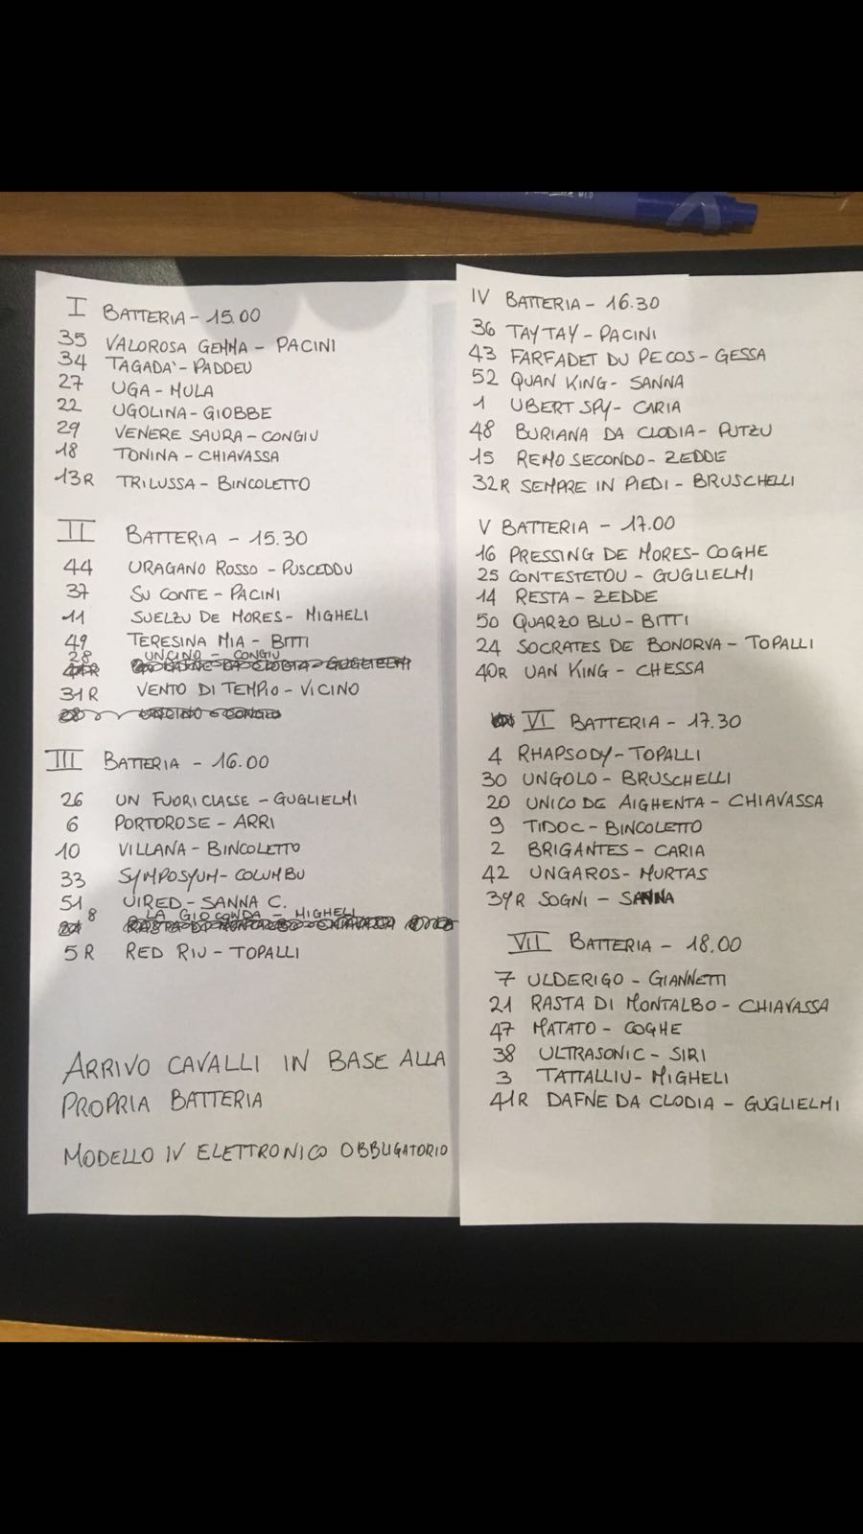 I BATTERIA - 15.00
35 VALOROSA GEMMA - PACINI
34 TAGADA' - PADDEU
27 UGA - MULA
22 UGOLINA - GIOBBE
29 VENERE SAURA - CONGIU
18 TONINA - CHIAVASSA
13R TRILUSSA - BINCOLETTO
II BATTERIA - 15.30
44 URAGANO ROSSO - PUSCEDDU
37 SU CONTE - PACINI
11 SUELZU DE MORES - MIGHELI
49 TERESINA MIA - BITTI
28 UNCINO - CONGIU
31R VENTO DI TEMPIO - VICINO
III BATTERIA - 16.00
26 UN FUORICLASSE - GUGLIELMI
6 PORTOROSE - ARRI
10 VILLANA - BINCOLETTO
33 SYMPOSYUM - COLUMBU
51 UIRED - SANNA C.
8 LA GIOCONDA - MIGHELI
5 R RED RIU - TOPALLI
ARRIVO CAVALLI IN BASE ALLA
PROPRIA BATTERIA
MODELLO IV ELETTRONICO OBBLIGATORIO
IV BATTERIA - 16.30
36 TAYTAY - PACINI
43 FARFADET DU PECOS - GESSA
52 QUAN KING - SANNA
1 UBERT SPY - CARIA
48 BURIANA DA CLODIA - PUTZU
15 REMO SECONDO - ZEDDE
32R SEMPRE IN PIEDI - BRUSCHELLI
V BATTERIA - 17.00
16 PRESSING DE MORES - COGHE
25 CONTESTETOU - GUGLIELMI
14 RESTA - ZEDDE
50 QUARZO BLU - BITTI
24 SOCRATES DE BONORVA - TOPALLI
40R UAN KING - CHESSA
VI BATTERIA - 17.30
4 RHAPSODY - TOPALLI
30 UNGOLO - BRUSCHELLI
20 UNICO DE AIGHENTA - CHIAVASSA
9 TIDOC - BINCOLETTO
2 BRIGANTES - CARIA
42 UNGAROS - MURTAS
39R SOGNI - SANNA
VII BATTERIA - 18.00
7 ULDERIGO - GIANNETTI
21 RASTA DI MONTALBO - CHIAVASSA
47 MATATO - COGHE
38 ULTRASONIC - SIRI
3 TATTALLIU - MIGHELI
41R DAFNE DA CLODIA - GUGLIELMI